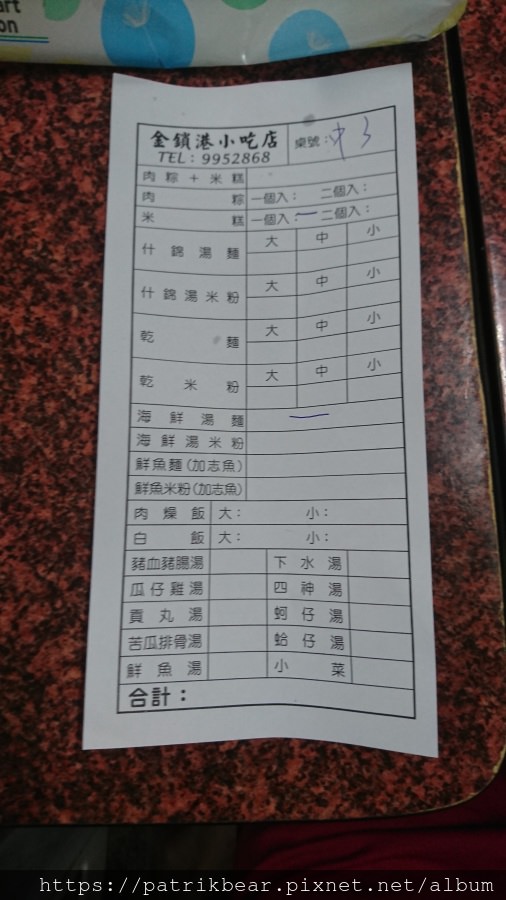 art
on
金鎖港小吃店 桌號：中3
TEL：9952868
肉粽＋米糕
肉粽 一個入： 二個入：
米糕 一個入： 二個入：
什錦湯麵 大 中 小
什錦湯米粉 大 中 小
乾麵 大 中 小
乾米粉 大 中 小
海鮮湯麵 一
海鮮湯米粉
鮮魚麵(加志魚)
鮮魚米粉(加志魚)
肉燥飯 大： 小：
白飯 大： 小：
豬血豬腸湯 下水湯
瓜仔雞湯 四神湯
貢丸湯 蚵仔湯
苦瓜排骨湯 蛤仔湯
鮮魚湯 小菜
合計：
https://patrikbear.pixnet.net/album